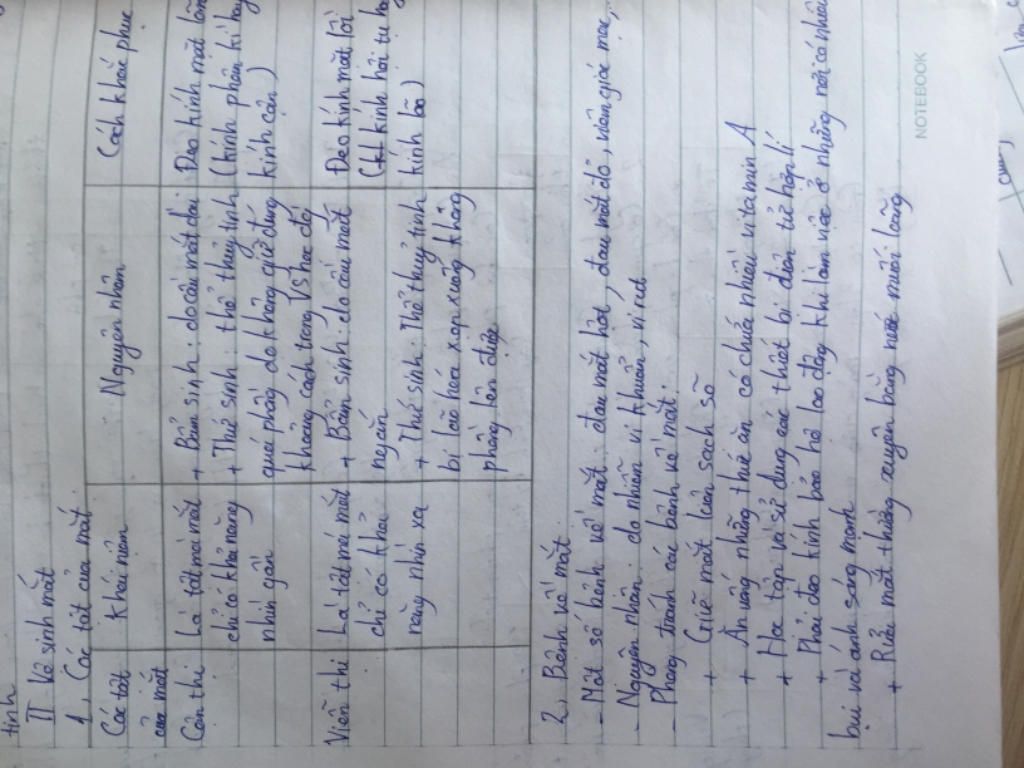 tinh
II Vệ sinh mắt
1, Các tật của mắt.
Các tật của mắt
Khái niệm
Nguyên nhân
Cách khắc phục
Cận thị
Là tật mà mắt
chỉ có khả năng
nhìn gần
+ Bẩm sinh: do cầu mắt dài
+ Thứ sinh: thể thủy tinh
quá phồng do không giữ đúng
khoảng cách trong vs học đg
Đeo kính mắt lõm
(kính phân kì hay
kính cận)
Viễn thị
Là tật mà mắt
chỉ có khả
năng nhìn xa
+ Bẩm sinh: do cầu mắt
ngắn
+ Thứ sinh: Thể thuỷ tinh
bị lão hóa xẹp xuống không
phồng lên được
Đeo kính mắt lồi
(kính hội tụ hay
kính lão)
2, Bệnh về mắt
- Một số bệnh về mắt: đau mắt hột, đau mắt đỏ, viêm giác mạc,
- Nguyên nhân: do nhiễm vi khuẩn, vi rút
- Phòng tránh các bệnh về mắt:
+ Giữ mắt luôn sạch sẽ
+ Ăn uống những thức ăn có chứa nhiều vitamin A
+ Học tập và sử dụng các thiết bị điện tử hợp lí
+ Phải đeo kính bảo hộ lao động khi làm việc ở những nơi có nhiều
bụi và ánh sáng mạnh
+ Rửa mắt thường xuyên bằng nước muối loãng
NOTEBOOK